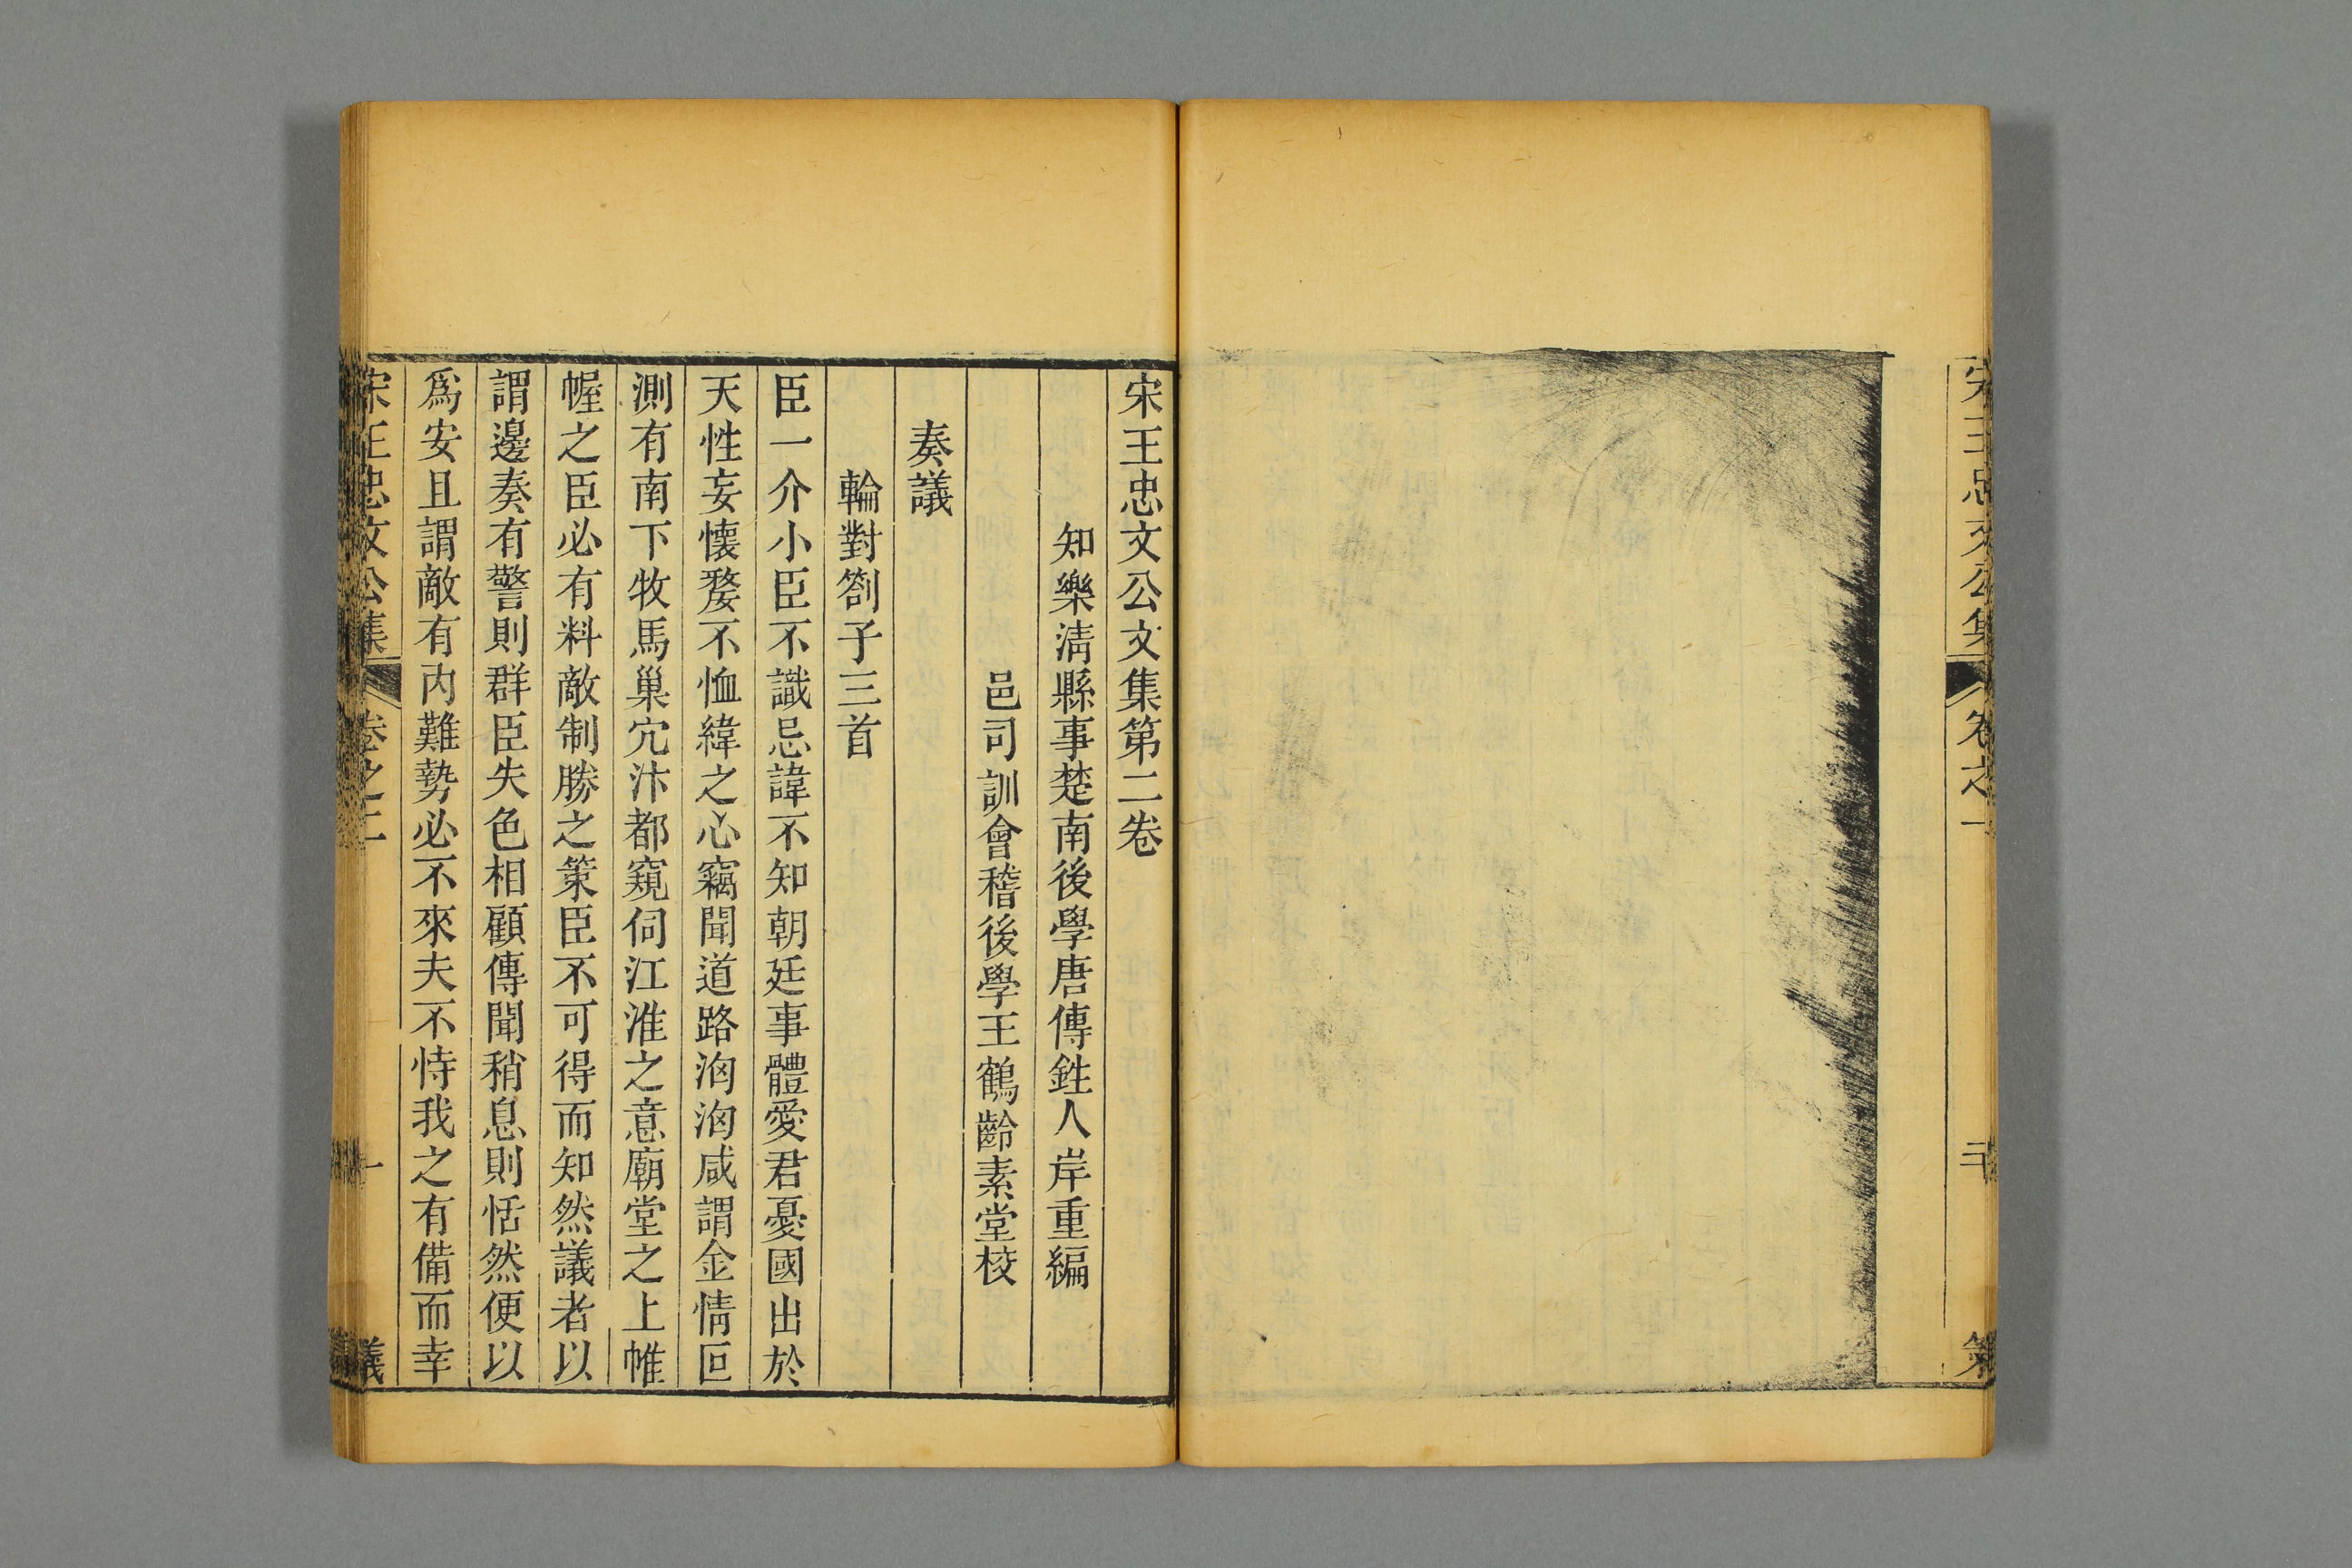 宋王忠文公集
卷之一
宋王忠文公文集第二卷
知樂淸縣事楚南後學唐傳鉎人岸重編
邑司訓會稽後學王鶴齡素堂校
奏議
輪對劄子三首
臣一介小臣不識忌諱不知朝廷事體愛君憂國出於
天性妄懷嫠不恤緯之心竊聞道路洶洶咸謂金情叵
測有南下牧馬巢穴汴都窺伺江淮之意廟堂之上帷
幄之臣必有料敵制勝之策臣不可得而知然議者以
謂邊奏有警則群臣失色相顧傳聞稍息則恬然便以
爲安且謂敵有內難勢必不來夫不恃我之有備而幸
宋王忠文公集
卷之二
一
議